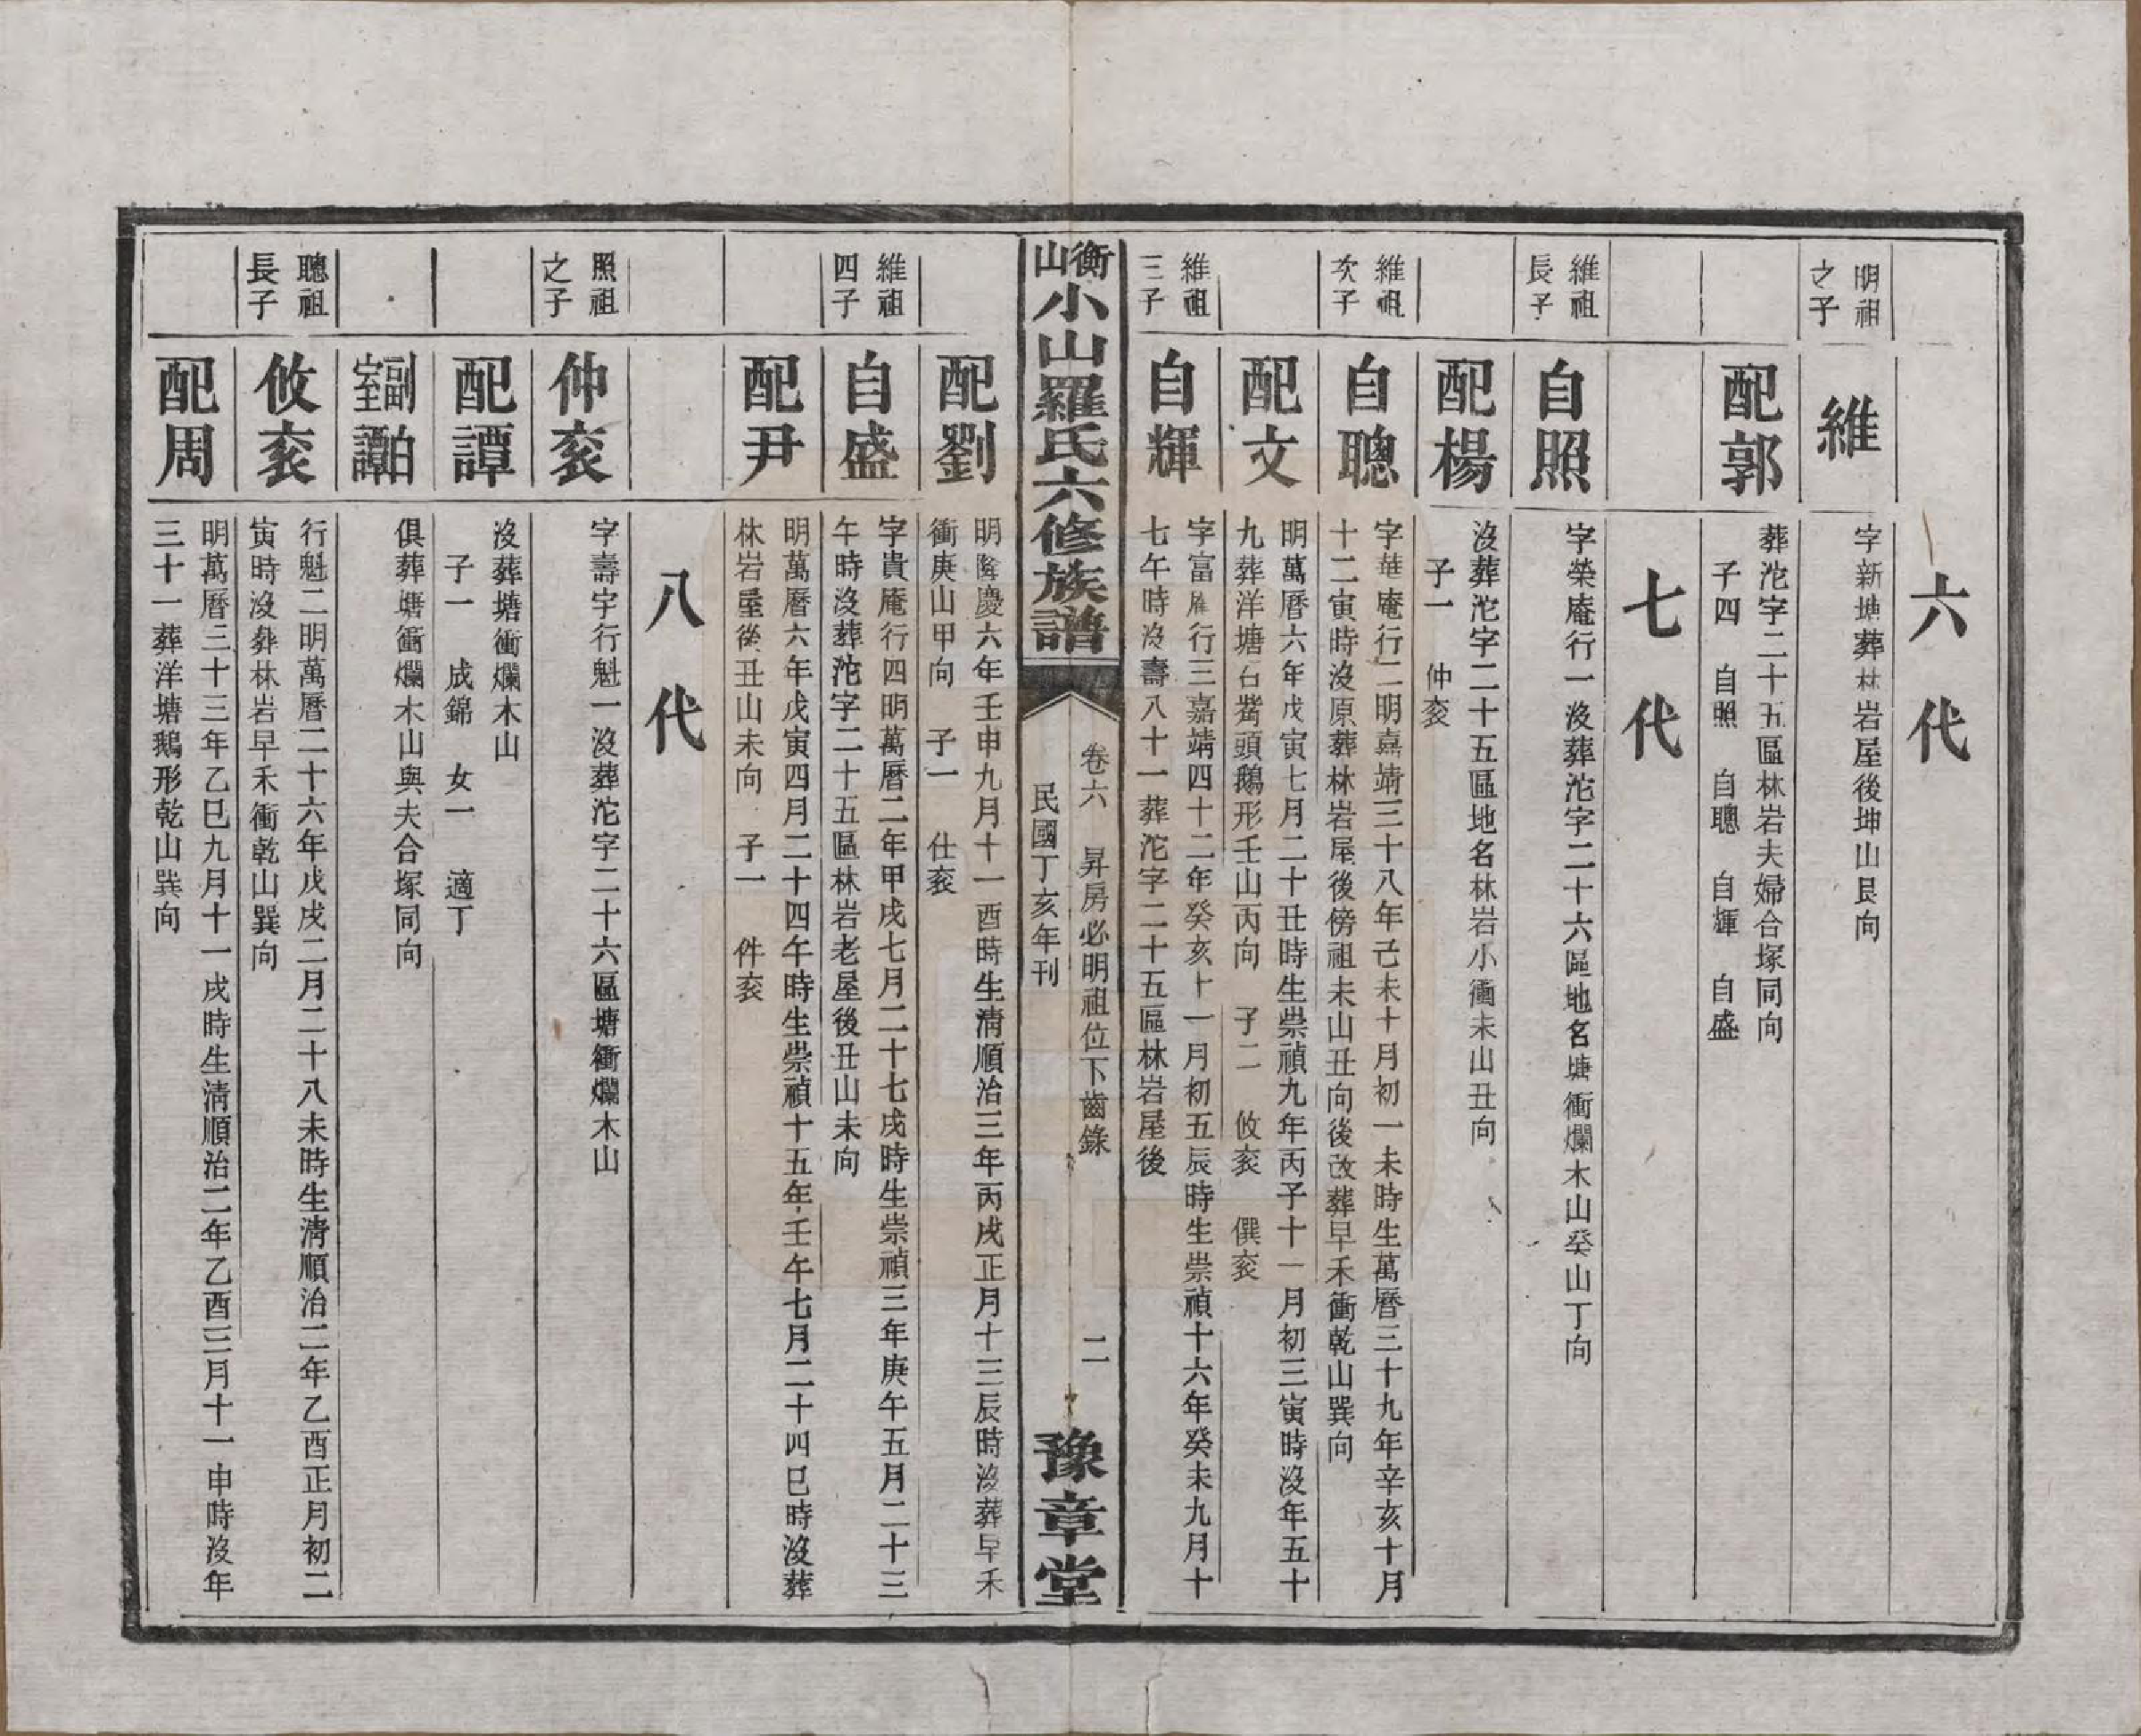 六代
明祖之子
維
字新塘葬林岩屋後坤山艮向
配郭
葬沱字二十五區林岩夫婦合塚同向
子四 自照 自聰 自輝 自盛
七代
維祖長子
自照
字榮庵行一沒葬沱字二十六區地名塘衝爛木山癸山丁向
配楊
沒葬沱字二十五區地名林岩小衝未山丑向
子一 仲衮
維祖次子
自聰
字華庵行二明嘉靖三十八年己未十月初一未時生萬曆三十九年辛亥十月
十二寅時沒原葬林岩屋後傍祖未山丑向後改葬早禾衝乾山巽向
配文
明萬曆六年戊寅七月二十丑時生崇禎九年丙子十一月初三寅時沒年五十
九葬洋塘石嘴頭鵝形壬山丙向 子二 攸衮 僎衮
維祖三子
自輝
字富庵行三嘉靖四十二年癸亥十一月初五辰時生崇禎十六年癸未九月十
七午時沒壽八十一葬沱字二十五區林岩屋後
衡山小山羅氏六修族譜
卷六 昇房必明祖位下齒錄 二
民國丁亥年刊
豫章堂
配劉
明隆慶六年壬申九月十一酉時生清順治三年丙戌正月十三辰時沒葬早禾
衝庚山甲向 子一 仕衮
維祖四子
自盛
字貴庵行四明萬曆二年甲戌七月二十七戌時生崇禎三年庚午五月二十三
午時沒葬沱字二十五區林岩老屋後丑山未向
配尹
明萬曆六年戊寅四月二十四午時生崇禎十五年壬午七月二十四巳時沒葬
林岩屋後丑山未向 子一 件衮
八代
照祖之子
仲衮
字壽宇行魁一沒葬沱字二十六區塘衝爛木山
配譚
沒葬塘衝爛木山
子一 成錦 女一 適丁
副室柏譚
俱葬塘衝爛木山與夫合塚同向
聰祖長子
攸衮
行魁二明萬曆二十六年戊戌二月二十八未時生清順治二年乙酉正月初二
寅時沒葬林岩早禾衝乾山巽向
配周
明萬曆三十三年乙巳九月十一戌時生清順治二年乙酉三月十一申時沒年
三十一葬洋塘鵝形乾山巽向